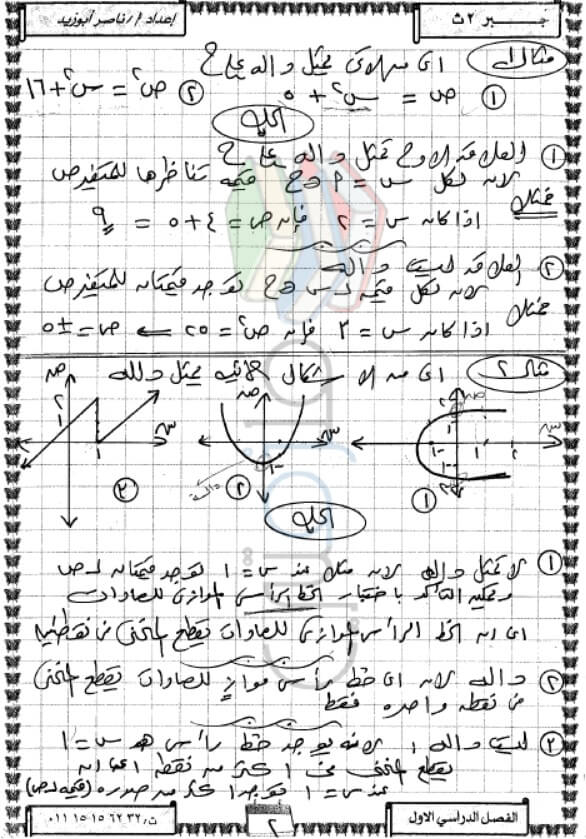 جبر ٢ث
إعداد / أ. ناصر أبوزيد
مثال ١ أى مما يلى يمثل دالة على ح
① ص = س٢ + ٥ ② ص٢ = س٢ + ١٦
الحل
① العلاقة الأولى تمثل دالة على ح
لأنه لكل س = ٢ قيمة تناظرها للمتغير ص
فمثلاً إذا كان س = ٢ فإن ص = ٤ + ٥ = ٩
② العلاقة ليست دالة
لأنه لكل قيمة لـ س توجد قيمتان للمتغير ص
فمثلاً إذا كان س = ٣ فإن ص٢ = ٢٥ ← ص = ±٥
مثال ٢ أى من الأشكال الآتية يمثل دالة
ص
ص
ص
س
س
س
٢
١
١
-١
دالة
٢
١
-١
١
٢
-١
-٢
① ② ③
الحل
① لا تمثل دالة لأنه مثلاً عند س = ١ توجد قيمتان لـ ص
ويمكن التأكد باختبار الخط الرأسى الموازى للصادات
أى أن الخط الرأسى الموازى للصادات يقطع المنحنى فى نقطتين
② دالة لأن أى خط رأسى موازٍ للصادات يقطع المنحنى
فى نقطة واحدة فقط
③ ليست دالة لأنه يوجد خط رأسى هو س = ١
يقطع المنحنى فى أكثر من نقطة أى أنه
عند س = ١ توجد أكثر من صورة (قيمة لـ ص)
الفصل الدراسي الاول
٢
ت/ ٠١١ ١٥ ١٥ ٦٢ ٣٢